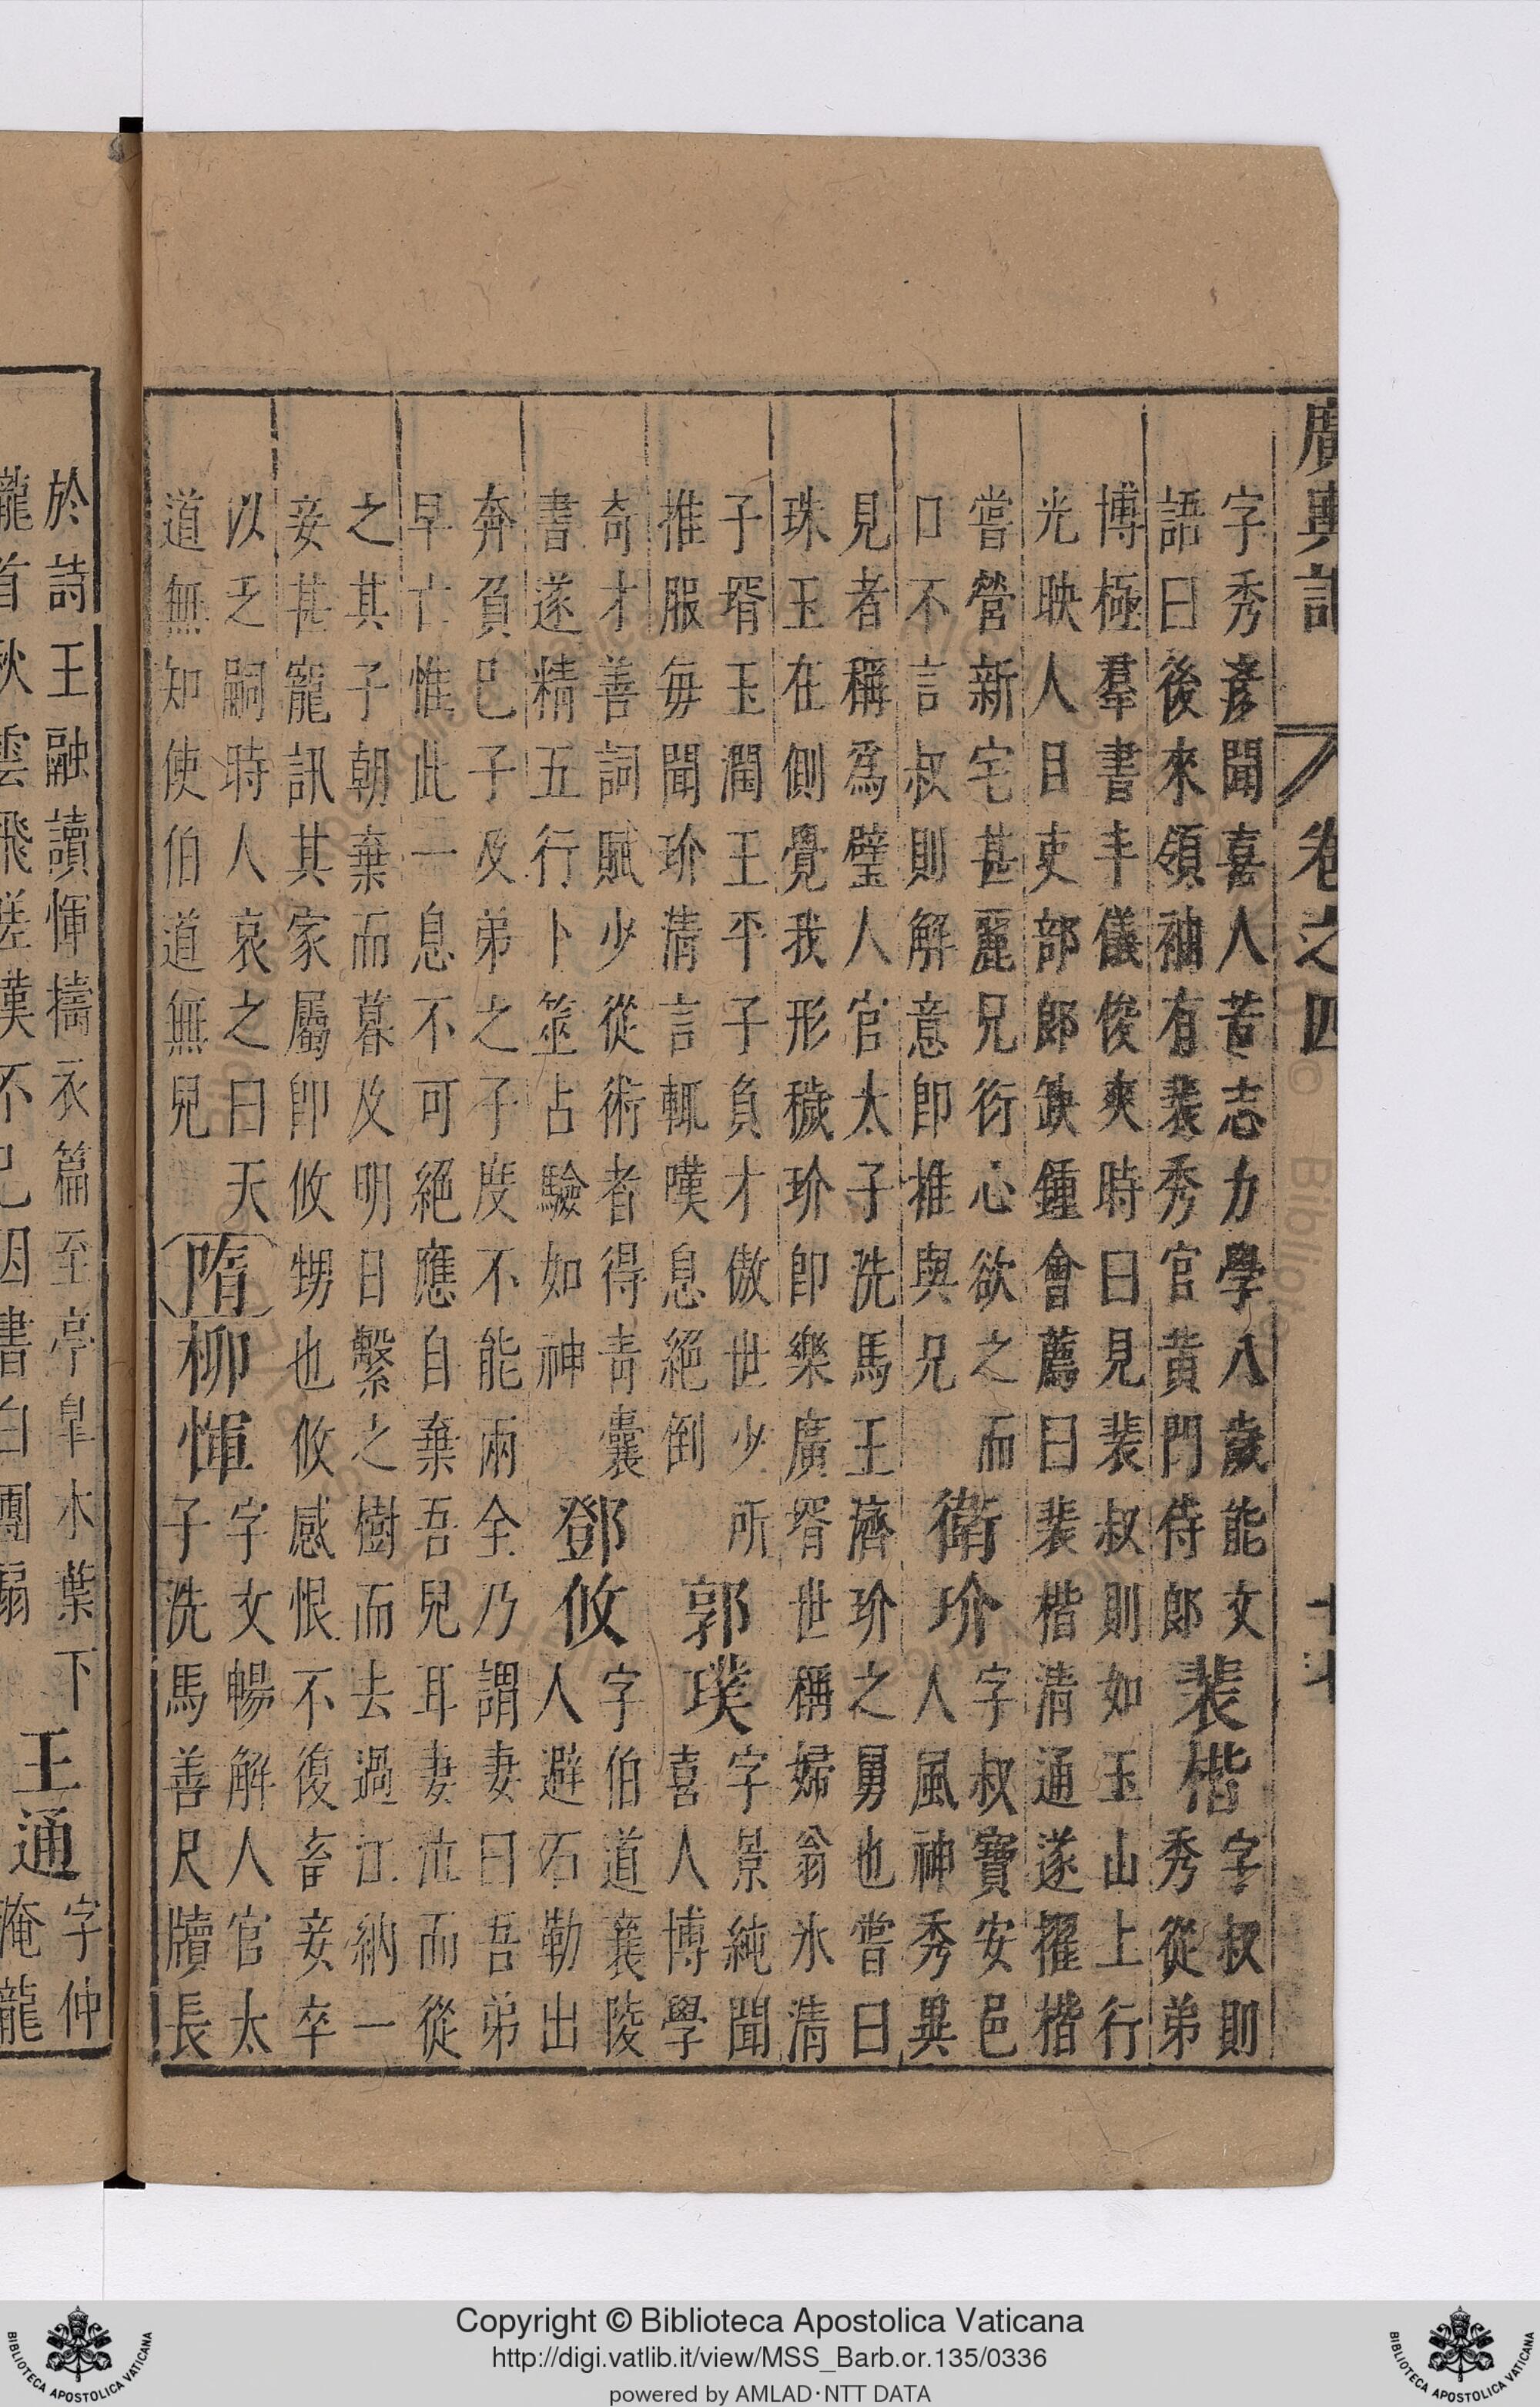 廣輿記 卷之四 十七
字秀彥聞喜人苦志力學八歲能文
語曰後來領袖有裴秀官黃門侍郎
裴楷
字叔則
秀從弟
博極羣書丰儀俊爽時曰見裴叔則如玉山上行
光映人目吏部郎缺鍾會薦曰裴楷清通遂擢楷
嘗營新宅甚麗兄衍心欲之而
口不言叔則解意即推與兄
衛玠
字叔寶安邑
人風神秀異
見者稱爲璧人官太子洗馬王濟玠之舅也嘗曰
珠玉在側覺我形穢玠即樂廣壻世稱婦翁氷清
子壻玉潤王平子負才傲世少所
推服每聞玠清言輒嘆息絕倒
郭璞
字景純聞
喜人博學
奇才善詞賦少從術者得青囊
書遂精五行卜筮占驗如神
鄧攸
字伯道襄陵
人避石勒出
奔負己子及弟之子度不能兩全乃謂妻曰吾弟
早亡惟此一息不可絕應自棄吾兒耳妻泣而從
之其子朝棄而暮及明日繫之樹而去過江納一
妾甚寵訊其家屬即攸甥也攸感恨不復畜妾卒
以乏嗣時人哀之曰天
道無知使伯道無兒
隋
柳惲
字文暢解人官太
子洗馬善尺牘長
於詩王融讀惲擣衣篇至亭皐木葉下
隴首秋雲飛嗟嘆不已因書白團扇
王通
字仲
淹龍
Copyright © Biblioteca Apostolica Vaticana
http://digi.vatlib.it/view/MSS_Barb.or.135/0336
powered by AMLAD·NTT DATA
BIBLIOTECA APOSTOLICA VATICANA
BIBLIOTECA APOSTOLICA VATICANA